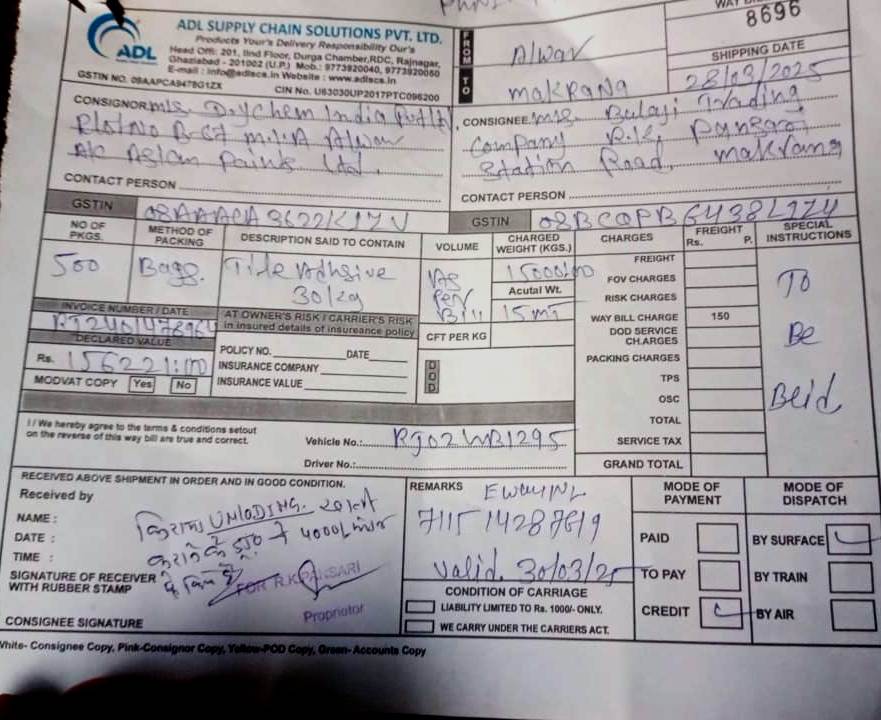 ADL
ADL SUPPLY CHAIN SOLUTIONS PVT. LTD.
Products Your's Delivery Responsibility Our's
Head Offi: 201, IInd Floor, Durga Chamber,RDC, Rajnagar,
Ghaziabad - 201002 (U.P.) Mob.: 9773920040, 9773920060
E-mail : info@adlscs.in Website : www.adlscs.in
GSTIN NO. 09AAPCA9478G1ZX
CIN No. U63030UP2017PTC096200
FROM
Alwar
TO
makrana
8696
SHIPPING DATE
28/03/2025
CONSIGNOR m/s Drychem India Pvt Ltd,
Plot No B-67 M.I.A Alwar
A/c Asian Paints Ltd.
CONTACT PERSON
CONSIGNEE m/s. Balaji Trading
Company R.K. Pansari
Station Road, makrana
CONTACT PERSON
GSTIN 08AAACA3622K1ZV
GSTIN 08BCQPB6438L1ZY
NO OF PKGS.
METHOD OF PACKING
DESCRIPTION SAID TO CONTAIN
VOLUME
CHARGED WEIGHT (KGS.)
CHARGES
FREIGHT Rs. P.
SPECIAL INSTRUCTIONS
500
Bags.
Tile Adhsive
As Per Bill
15000/00
Acutal Wt.
15 MT
FREIGHT
FOV CHARGES
RISK CHARGES
WAY BILL CHARGE 150
DOD SERVICE CHARGES
PACKING CHARGES
TPS
OSC
TOTAL
SERVICE TAX
GRAND TOTAL
To
Be
INVOICE NUMBER / DATE
DECLARED VALUE
Rs. 156221:00
MODVAT COPY Yes No
AT OWNER'S RISK / CARRIER'S RISK
in insured details of insureance policy
POLICY NO. DATE
INSURANCE COMPANY
INSURANCE VALUE
CFT PER KG
DOD
I / We hereby agree to the terms & conditions setout
on the reverse of this way bill are true and correct.
Vehicle No.: RJ02WB1295
Driver No.:
RECEIVED ABOVE SHIPMENT IN ORDER AND IN GOOD CONDITION.
Received by
NAME :
DATE :
TIME :
SIGNATURE OF RECEIVER
WITH RUBBER STAMP
FOR R.K.PANSARI
Proprietor
CONSIGNEE SIGNATURE
REMARKS
valid. 30/03/25
CONDITION OF CARRIAGE
LIABILITY LIMITED TO Rs. 1000/- ONLY.
WE CARRY UNDER THE CARRIERS ACT.
MODE OF PAYMENT
PAID
TO PAY
CREDIT
MODE OF DISPATCH
BY SURFACE
BY TRAIN
BY AIR
White- Consignee Copy, Pink-Consignor Copy, Yellow-POD Copy, Green- Accounts Copy